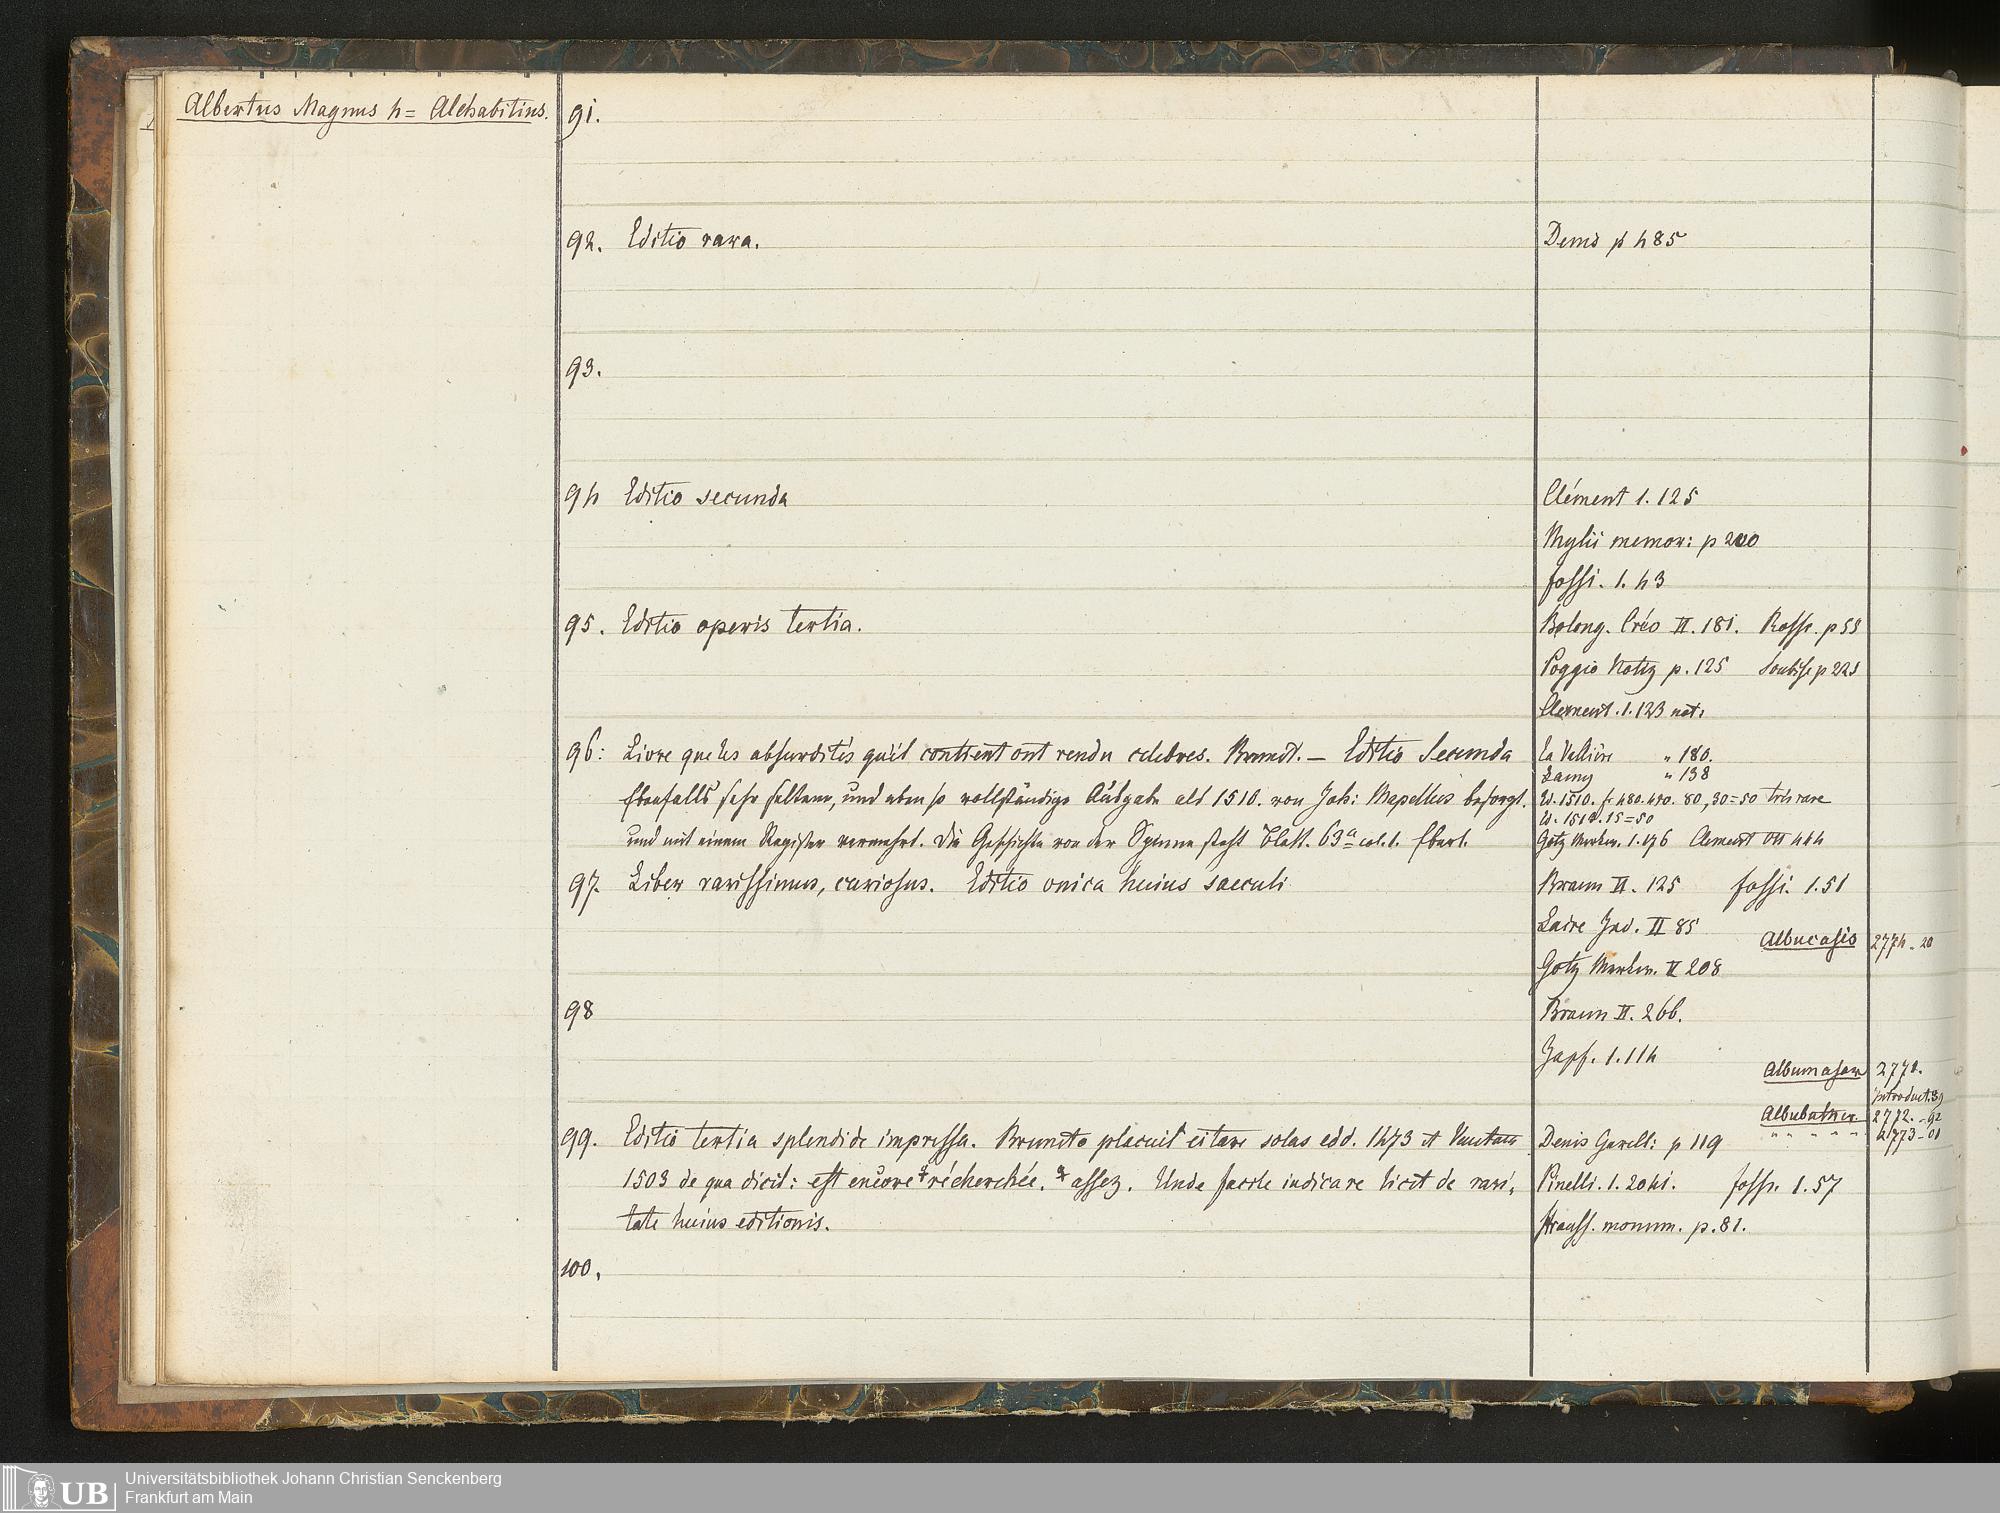 Albertus Magnus h = Alchabitius.
91.
92. Editio rara.
Denis p 485
93.
94 Editio secunda
Clément 1. 125
Mylii memor: p 200
fossi. 1. 43
95. Editio operis tertia.
Bolong. Créo II. 181. Rossi. p 55
Poggio Notiz p. 125 Soubise p 221
Clement. 1. 123 not:
96: Livre que les absurdités qu'il contient ont rendu celebres. Brunet. — Editio Secunda
La Vallière " 180.
Lamy " 138
Ebenfalls sehr seltene, und eben so vollständige Ausgabe als 1510. von Joh: Mapellus besorgt.
Ed. 1510. f. 480. 490. 80, 30 = 50 très rare
Ed. 1513. 15 = 50
und mit einem Register vermehrt. Die Geschichte von der Spinne steht Blatt. 63a col. 1. Ebert.
Götz Merkw. 1. 176 Clement VII 444
97. Liber rarissimus, curiosus. Editio unica huius saeculi
Braun II. 125 fossi. 1. 51
Laire Ind. II 85
Albucasis 2774. 20
Götz Merkw. II 208
98
Braun II. 266.
Zapf. 1. 114
Albumasar 2771.
Introduct. 89
Albubather 2772. - 92
" " " " " 2773 - 01
99. Editio tertia splendide impressa. Bruneto placuit citare solas edd. 1473 et Venetam
Denis Garell: p 119
1503 de qua dicit: est encore récherchée. assez. Unde facile iudicare licet de rari,
Pinelli. 1. 2041. fossi. 1. 57
tate huius editionis.
Strauss. monum. p. 81.
100.
UB
Universitätsbibliothek Johann Christian Senckenberg
Frankfurt am Main